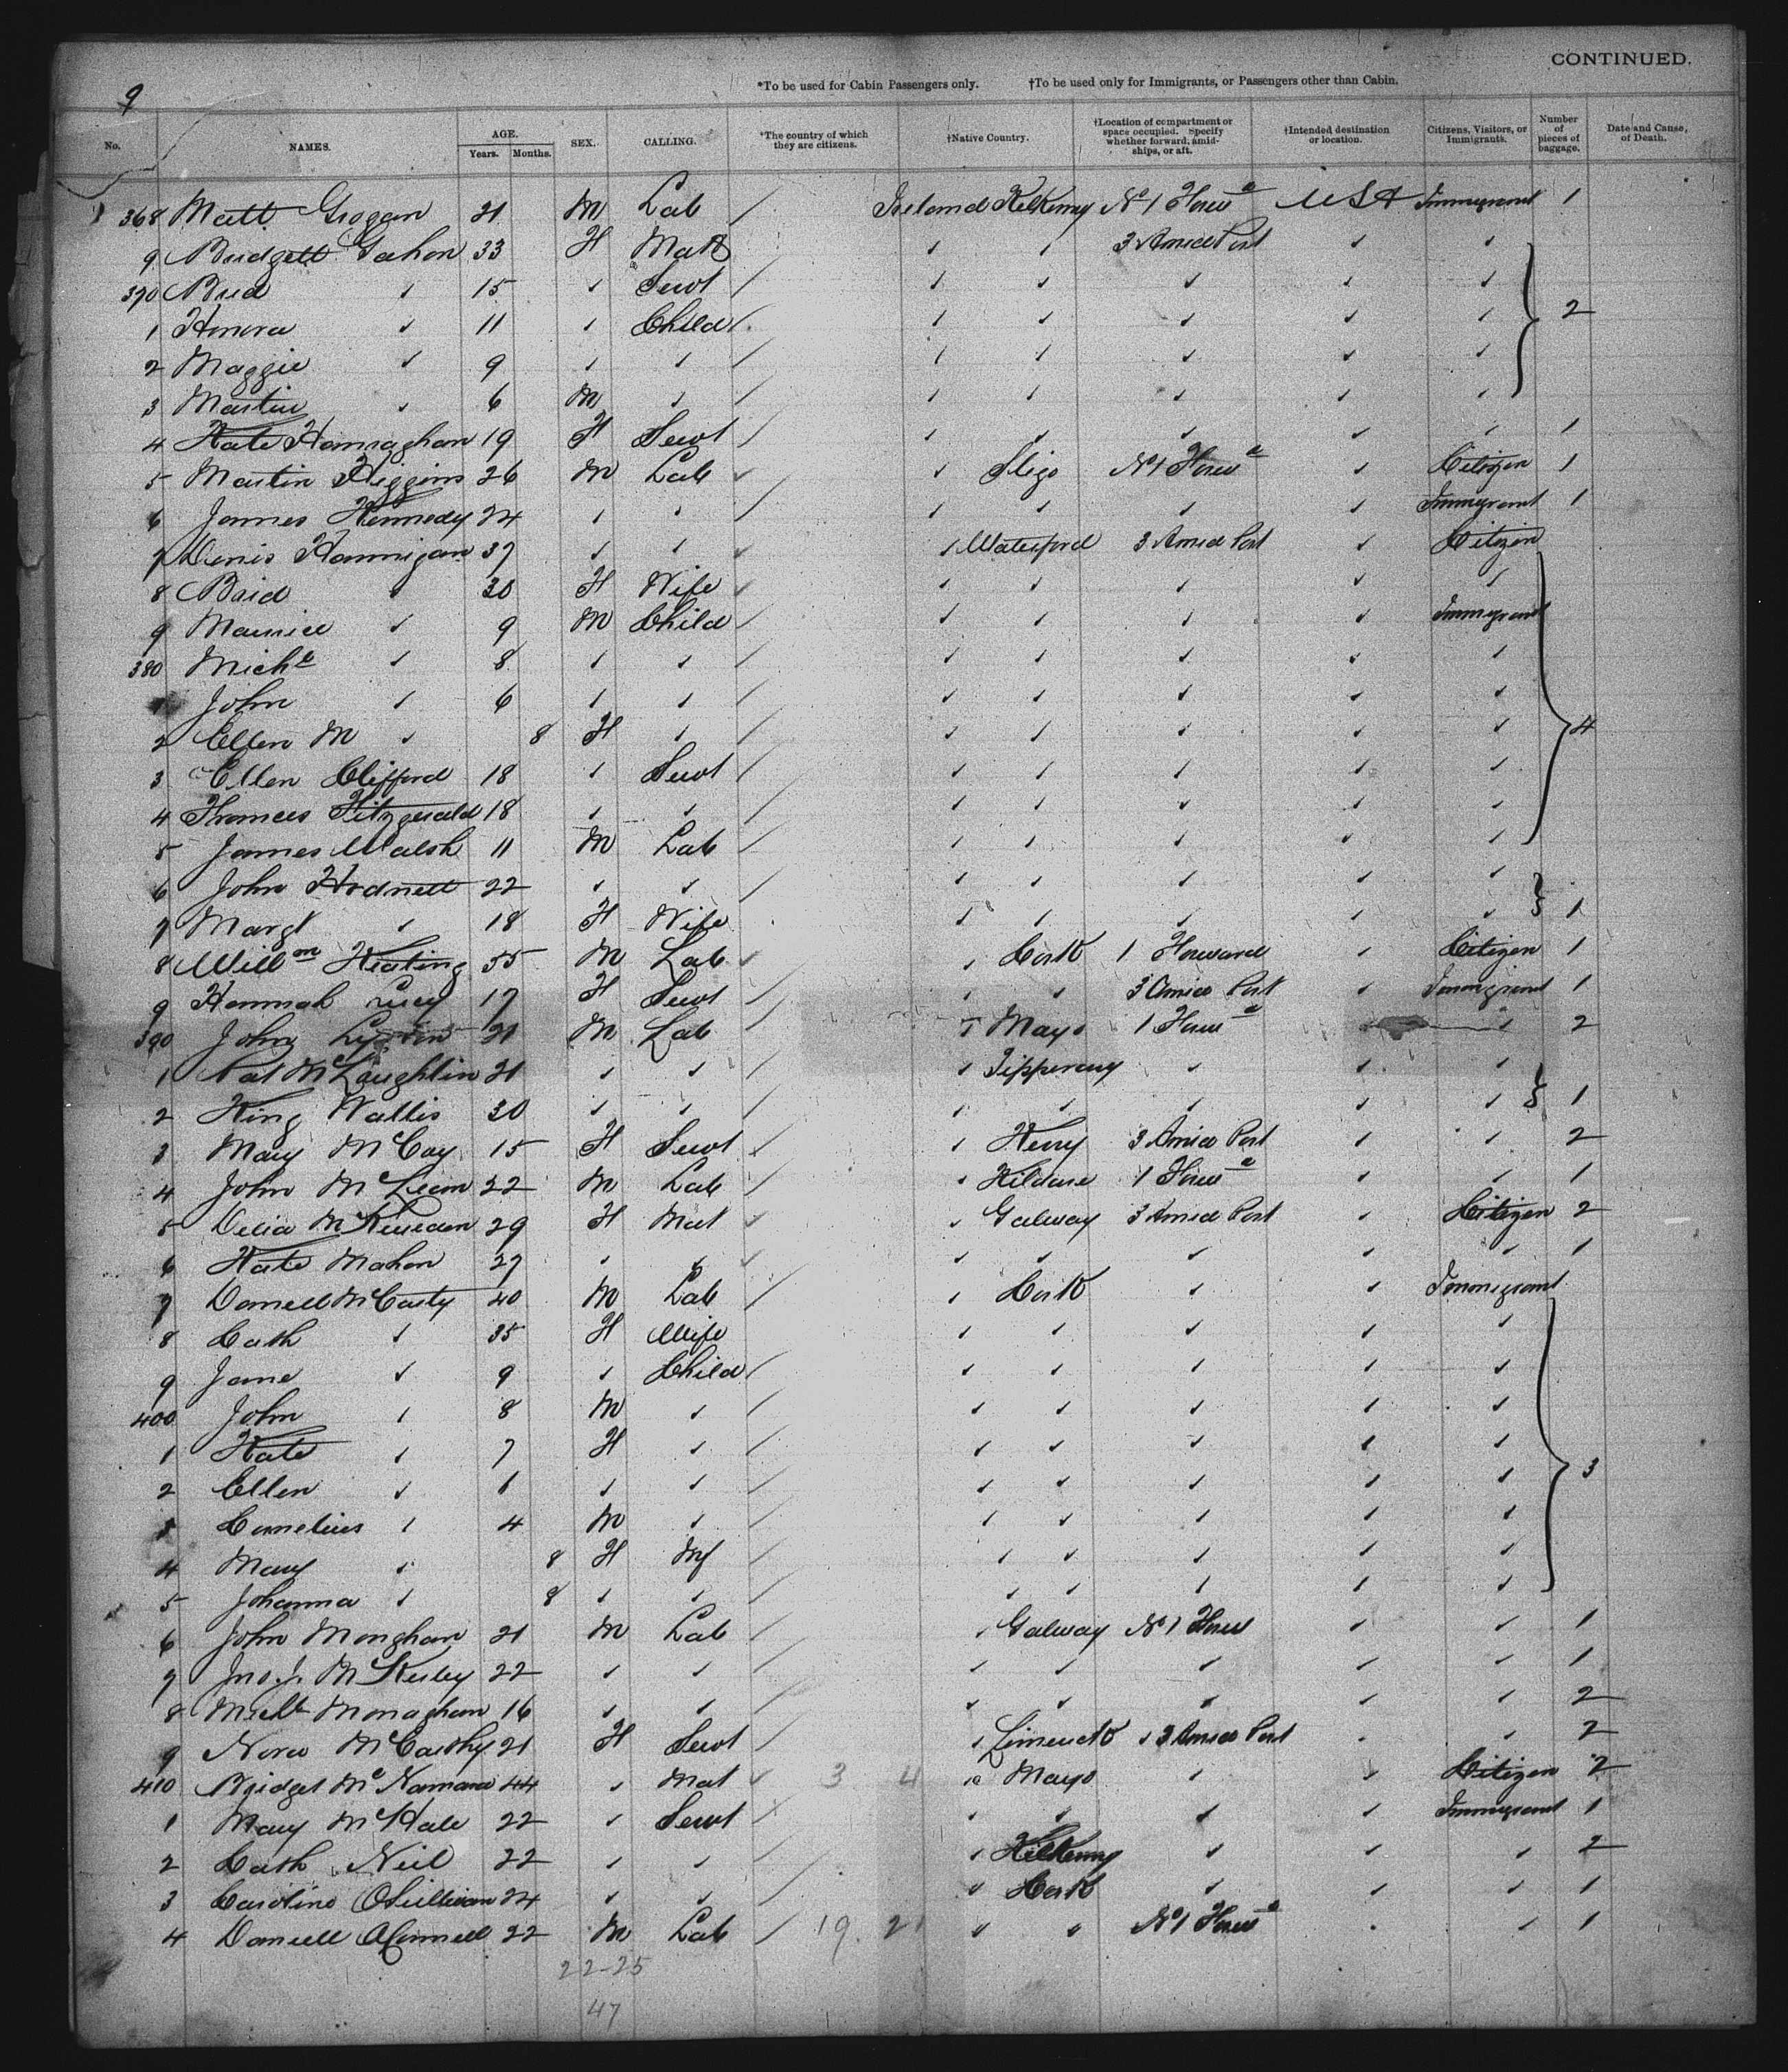 CONTINUED.
9
*To be used for Cabin Passengers only. †To be used only for Immigrants, or Passengers other than Cabin.
No. NAMES. AGE. Years. Months. SEX. CALLING. *The country of which they are citizens. †Native Country. †Location of compartment or space occupied. Specify whether forward, amidships, or aft. †Intended destination or location. Citizens, Visitors, or Immigrants. Number of pieces of baggage. Date and Cause, of Death.
368 Matt Grogan 21 M Lab / Ireland Kilkenny No 1 Forwd USA Immigrant 1
9 Bridgett Gahon 33 F Mat ✓ ✓ 3 Amid Port ✓ ✓
370 Brid ✓ 15 ✓ Servt / ✓ ✓ ✓ ✓ ✓
1 Honora ✓ 11 ✓ Child / ✓ ✓ ✓ ✓ ✓ 2
2 Maggie ✓ 9 ✓ ✓ / ✓ ✓ ✓ ✓ ✓
3 Martin ✓ 6 M ✓ / ✓ ✓ ✓ ✓ ✓
4 Kate Hanraghan 19 F Servt / ✓ ✓ ✓ ✓ ✓ 1
5 Martin Higgins 26 M Lab ✓ ✓ Sligo No 1 Forwd ✓ Citizen 1
6 James Kennedy 24 ✓ ✓ / ✓ ✓ ✓ ✓ Immigrant 1
7 Denis Hannigan 37 ✓ ✓ ✓ ✓ Waterford 3 Amid Port ✓ Citizen
8 Brid ✓ 30 F Wife ✓ ✓ ✓ ✓ ✓ ✓
9 Maurice ✓ 9 M Child / ✓ ✓ ✓ ✓ Immigrant
380 Michl ✓ 8 ✓ ✓ / ✓ ✓ ✓ ✓ ✓
1 John ✓ 6 ✓ ✓ / ✓ ✓ ✓ ✓ ✓
2 Ellen M ✓ 8 F ✓ / ✓ ✓ ✓ ✓ ✓ 4
3 Ellen Clifford 18 ✓ Servt / ✓ ✓ ✓ ✓ ✓
4 Frances Fitzgerald 18 ✓ ✓ / ✓ ✓ ✓ ✓ ✓
5 James Walsh 11 M Lab / ✓ ✓ ✓ ✓ ✓
6 John Hodnett 22 ✓ ✓ / ✓ ✓ ✓ ✓ ✓
7 Margt ✓ 18 F Wife ✓ ✓ ✓ ✓ ✓ 1
8 Willm Keating 55 M Lab ✓ ✓ Cork 1 Forward ✓ Citizen 1
9 Hannah Lucy 17 F Servt / ✓ ✓ 3 Amid Port ✓ Immigrant 1
390 John 21 M Lab / ✓ Mayo 1 Forwd ✓ 2
1 Pat McLaughlin 21 ✓ ✓ / ✓ Tipperary ✓ ✓ ✓
2 King Wallis 30 ✓ ✓ / ✓ ✓ ✓ ✓ ✓ 1
3 Mary McCoy 15 F Servt / ✓ Kerry 3 Amid Port ✓ ✓ 2
4 John McLean 22 M Lab / ✓ Kildare 1 Forwd ✓ ✓ 1
5 Delia 29 F Mat ✓ ✓ Galway 3 Amid Port ✓ Citizen 2
6 Kate Mahon 27 ✓ ✓ ✓ ✓ ✓ ✓ ✓ ✓ 1
7 Daniell McCarty 40 M Lab / ✓ Cork ✓ ✓ Immigrant
8 Cath ✓ 35 F Wife ✓ ✓ ✓ ✓ ✓
9 Jane ✓ 9 ✓ Child / ✓ ✓ ✓ ✓ ✓
400 John ✓ 8 M ✓ / ✓ ✓ ✓ ✓ ✓
1 Kate ✓ 7 F ✓ / ✓ ✓ ✓ ✓ ✓
2 Ellen ✓ 6 ✓ ✓ / ✓ ✓ ✓ ✓ ✓ 3
3 Cornelius ✓ 4 M ✓ / ✓ ✓ ✓ ✓ ✓
4 Mary ✓ 8 F Inf / ✓ ✓ ✓ ✓ ✓
5 Johanna ✓ 8 ✓ ✓ / ✓ ✓ ✓ ✓ ✓
6 John Monghan 21 M Lab / ✓ Galway No 1 Forwd ✓ ✓ 1
7 Jno. J. 22 ✓ ✓ / ✓ ✓ ✓ ✓ ✓ 1
8 Michl Monaghan 16 ✓ ✓ / ✓ ✓ ✓ ✓ ✓ 2
9 Nora McCarthy 21 F Servt / ✓ Limerick ✓ 3 Amid Port ✓ ✓ 2
410 Bridget McNamara 44 ✓ Mat ✓ 3 4 Mayo ✓ ✓ Citizen 2
1 Mary McHale 22 ✓ Servt ✓ ✓ ✓ ✓ Immigrant 1
2 Cath Neil 22 ✓ ✓ / ✓ Kilkenny ✓ ✓ ✓ 2
3 Caroline OSullivan 24 ✓ ✓ / ✓ Cork ✓ ✓ ✓ 1
4 Daniell OConnell 22 M Lab / 19. 21 ✓ ✓ No 1 Forwd ✓ ✓ 1
22-25
47